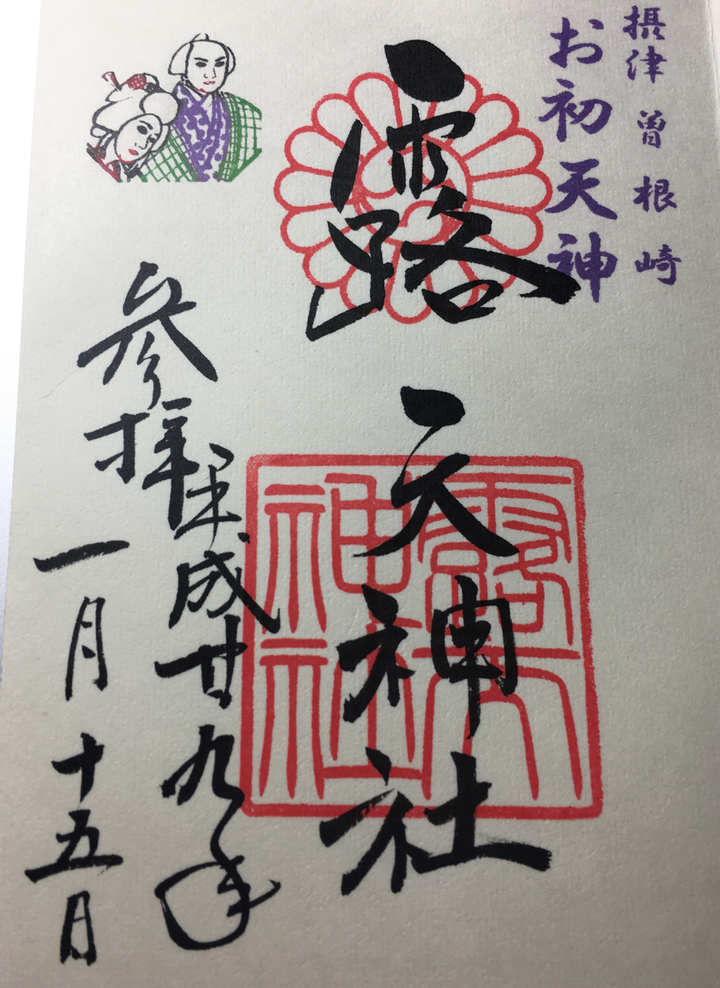 摂津 曽根崎
お初天神
露天神社
露天神社
参拝
平成廿九年
一月十五日